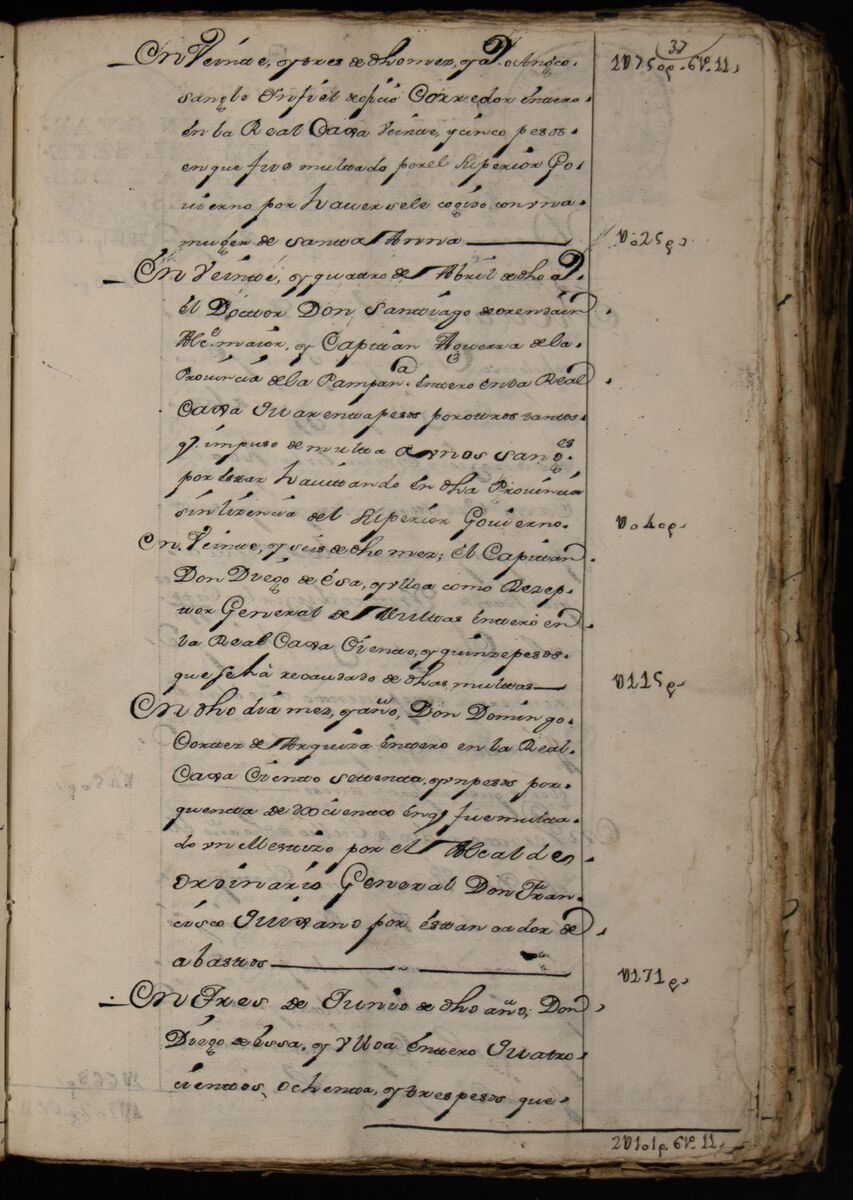 37
En Veinte, y tres de dho mez, y aº. o Angco. 1U750p. 6tˢ. 11,
sangle Infiel de ofiçio Corredor éntero
én la Real Caxa Veinte, y çinco pesos
en que fue multado por el Superior Go,
uierno por hauersele cogido con vna
muger de santa Anna U025p,
En Veinte, y quattro de Abril de dho aº.
él Doctor Don Santiago de orendain
Alcᵉ. maior, y Capitan Aguerra de la
Prouinçia de la Pampanᵃ. éntero én la Real
Caxa Quarenta pesos por otros tantos
q. impuso de multa a vnos sangˡᵉˢ
por éstar hauitando én dha Prouinçia
sin lizençia del Superior Gouierno. U040p,
En. Veinte, y seis de dho mez; él Capitan
Don Diego de ésa, y Vlloa como Rezep,
tor General de Multas éntero én
la Real Caxa Çiento, y quinze pesos.
que se há recaudado de dhas multas U115p,
En dho dia mez, y año, Don Domingo.
Cortez de Arquiza éntero en la Real
Caxa Çiento settenta, y vn pesos por
quenta de doçientos én q. fue multa
do vn Mestizo por el Alcalde
ordinario General Don Fran
çisco Quixano por éstancador de
abastos U171p,
En Tres de Junio de dho año; Don
Diego de éssa, y Vlloa éntero Quatro
çientos, ochenta, y tres pesos que
2U101p. 6tˢ. 11,